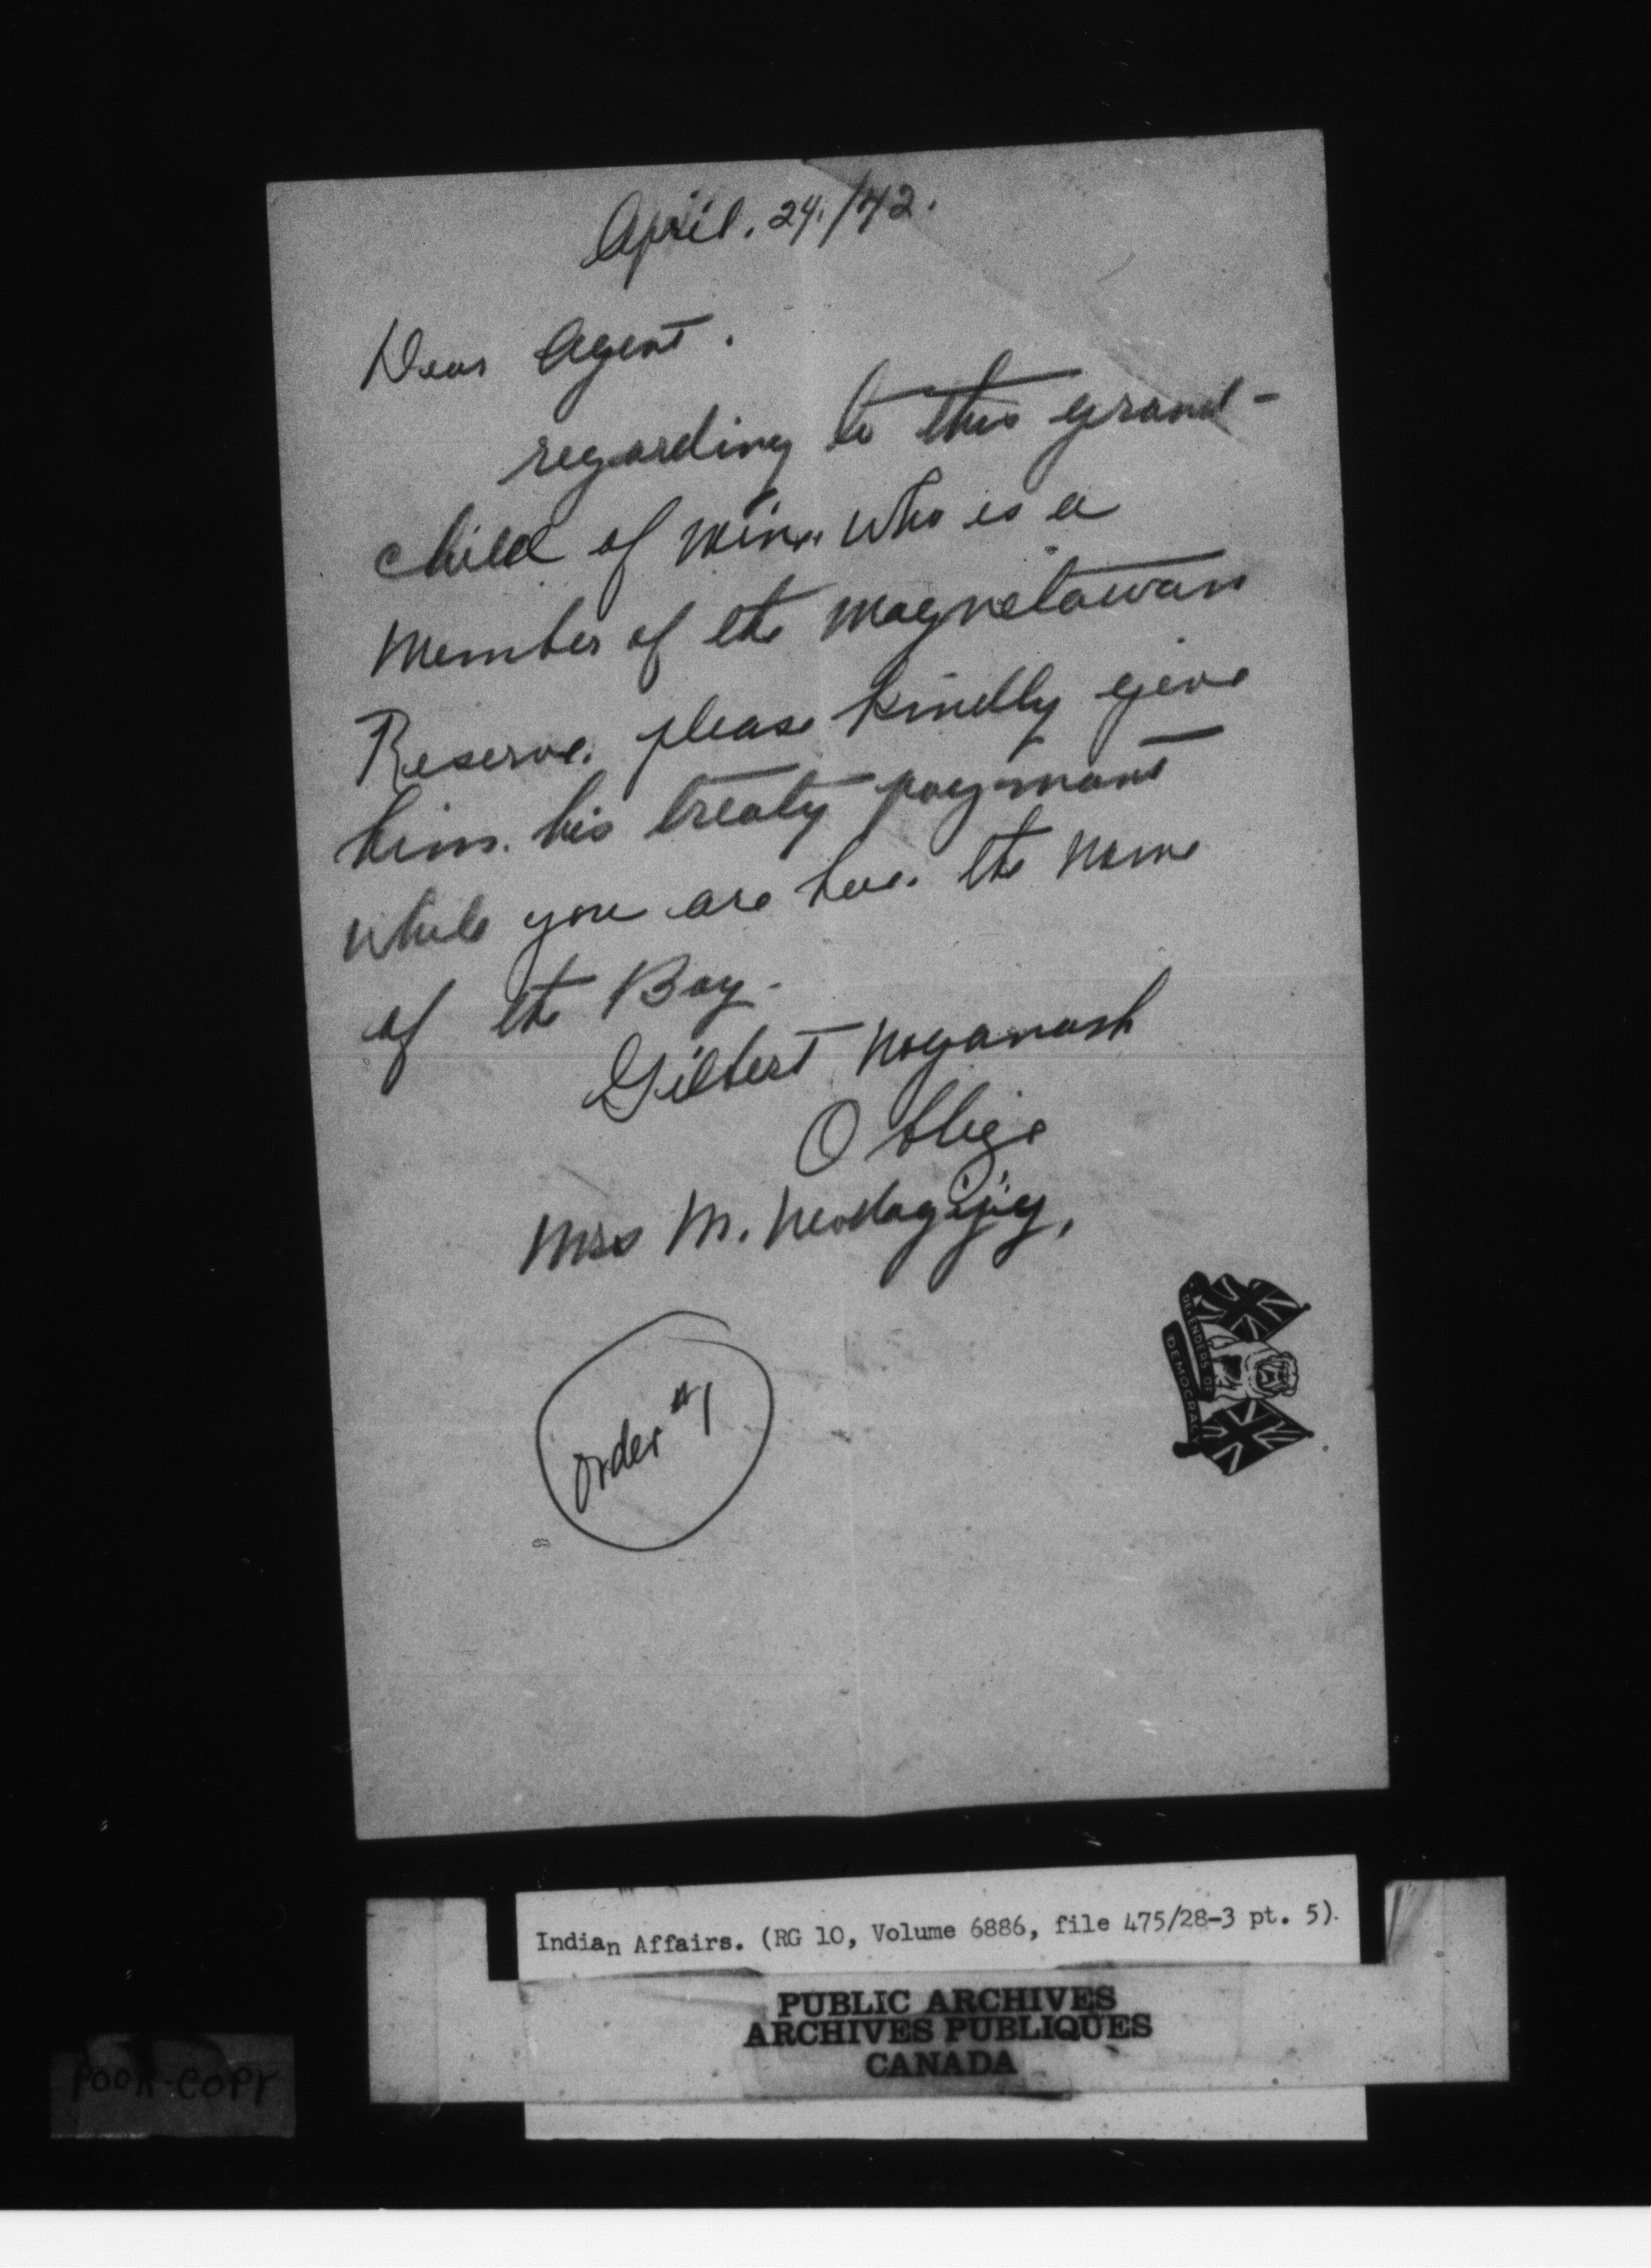 April. 24./42.
Dear Agent.
regarding to this grand-
child of mine. who is a
Member of the Magnetawan
Reserve. please kindly give
him. his treaty payment
while you are here. the name
of the Boy.
Gilbert Noganosh
Oblige
Mrs M.
Order #1
DEFENDERS OF
DEMOCRACY
Indian Affairs. (RG 10, Volume 6886, file 475/28-3 pt. 5).
PUBLIC ARCHIVES
ARCHIVES PUBLIQUES
CANADA
POOR COPY